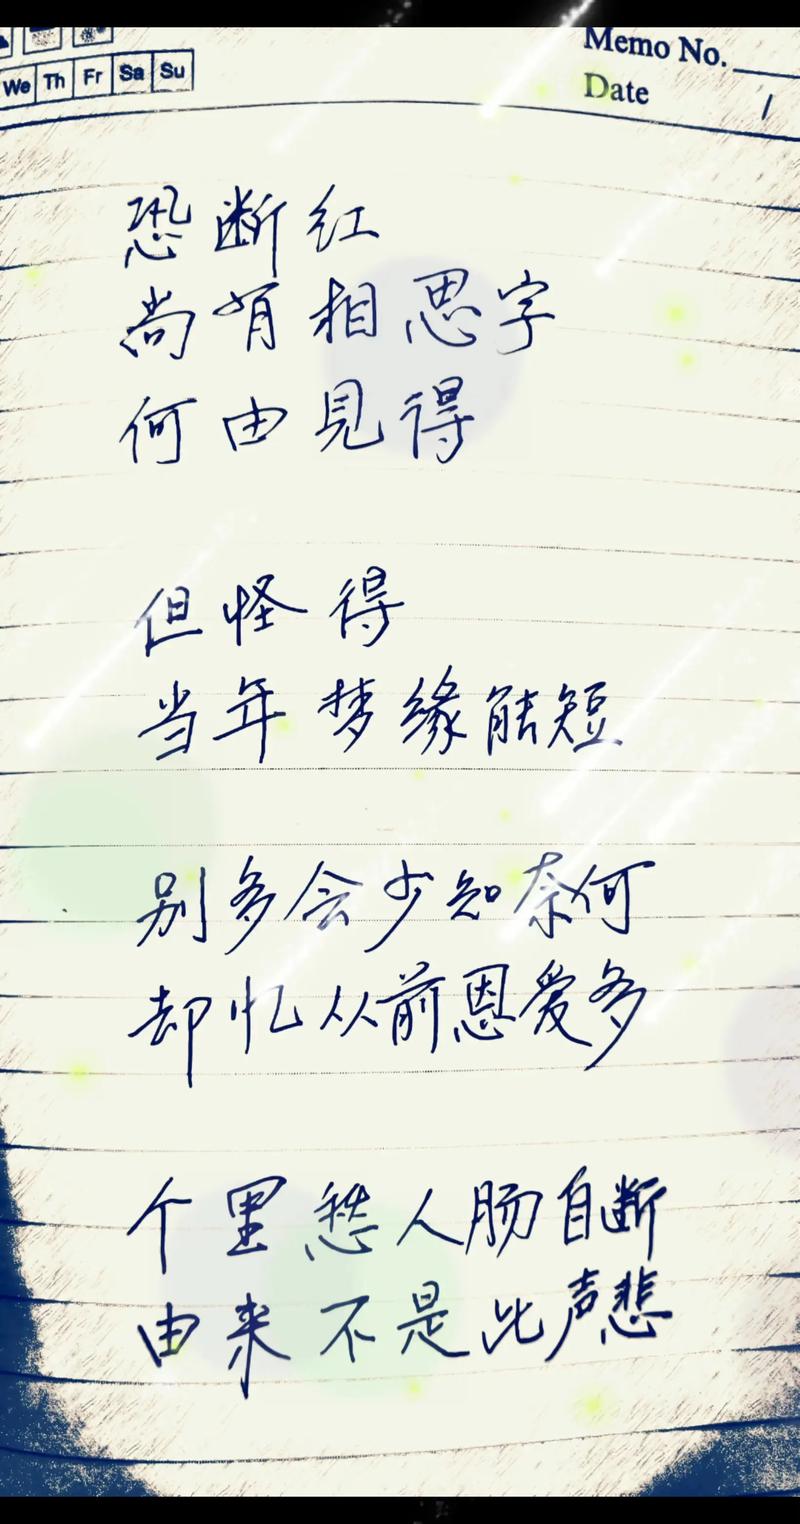 We Th Fr Sa Su
Memo No.
Date /
恐断红
尚有相思字
何由見得
但怪得
当年梦缘能短
别多会少知奈何
却忆从前恩爱多
个里愁人肠自断
由来不是此声悲